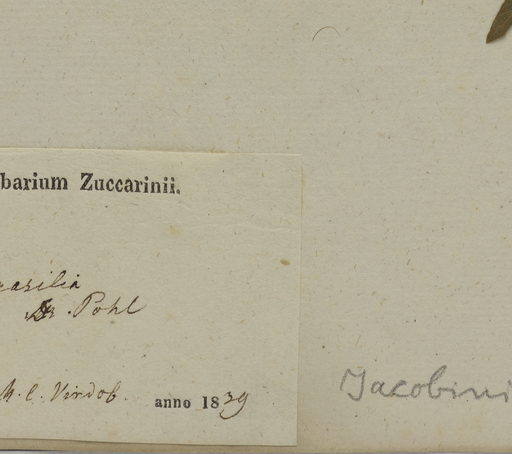 barium Zuccarinii.
rasilia
Dr. Pohl
M. C. Vindob. anno 1839
Jacobini